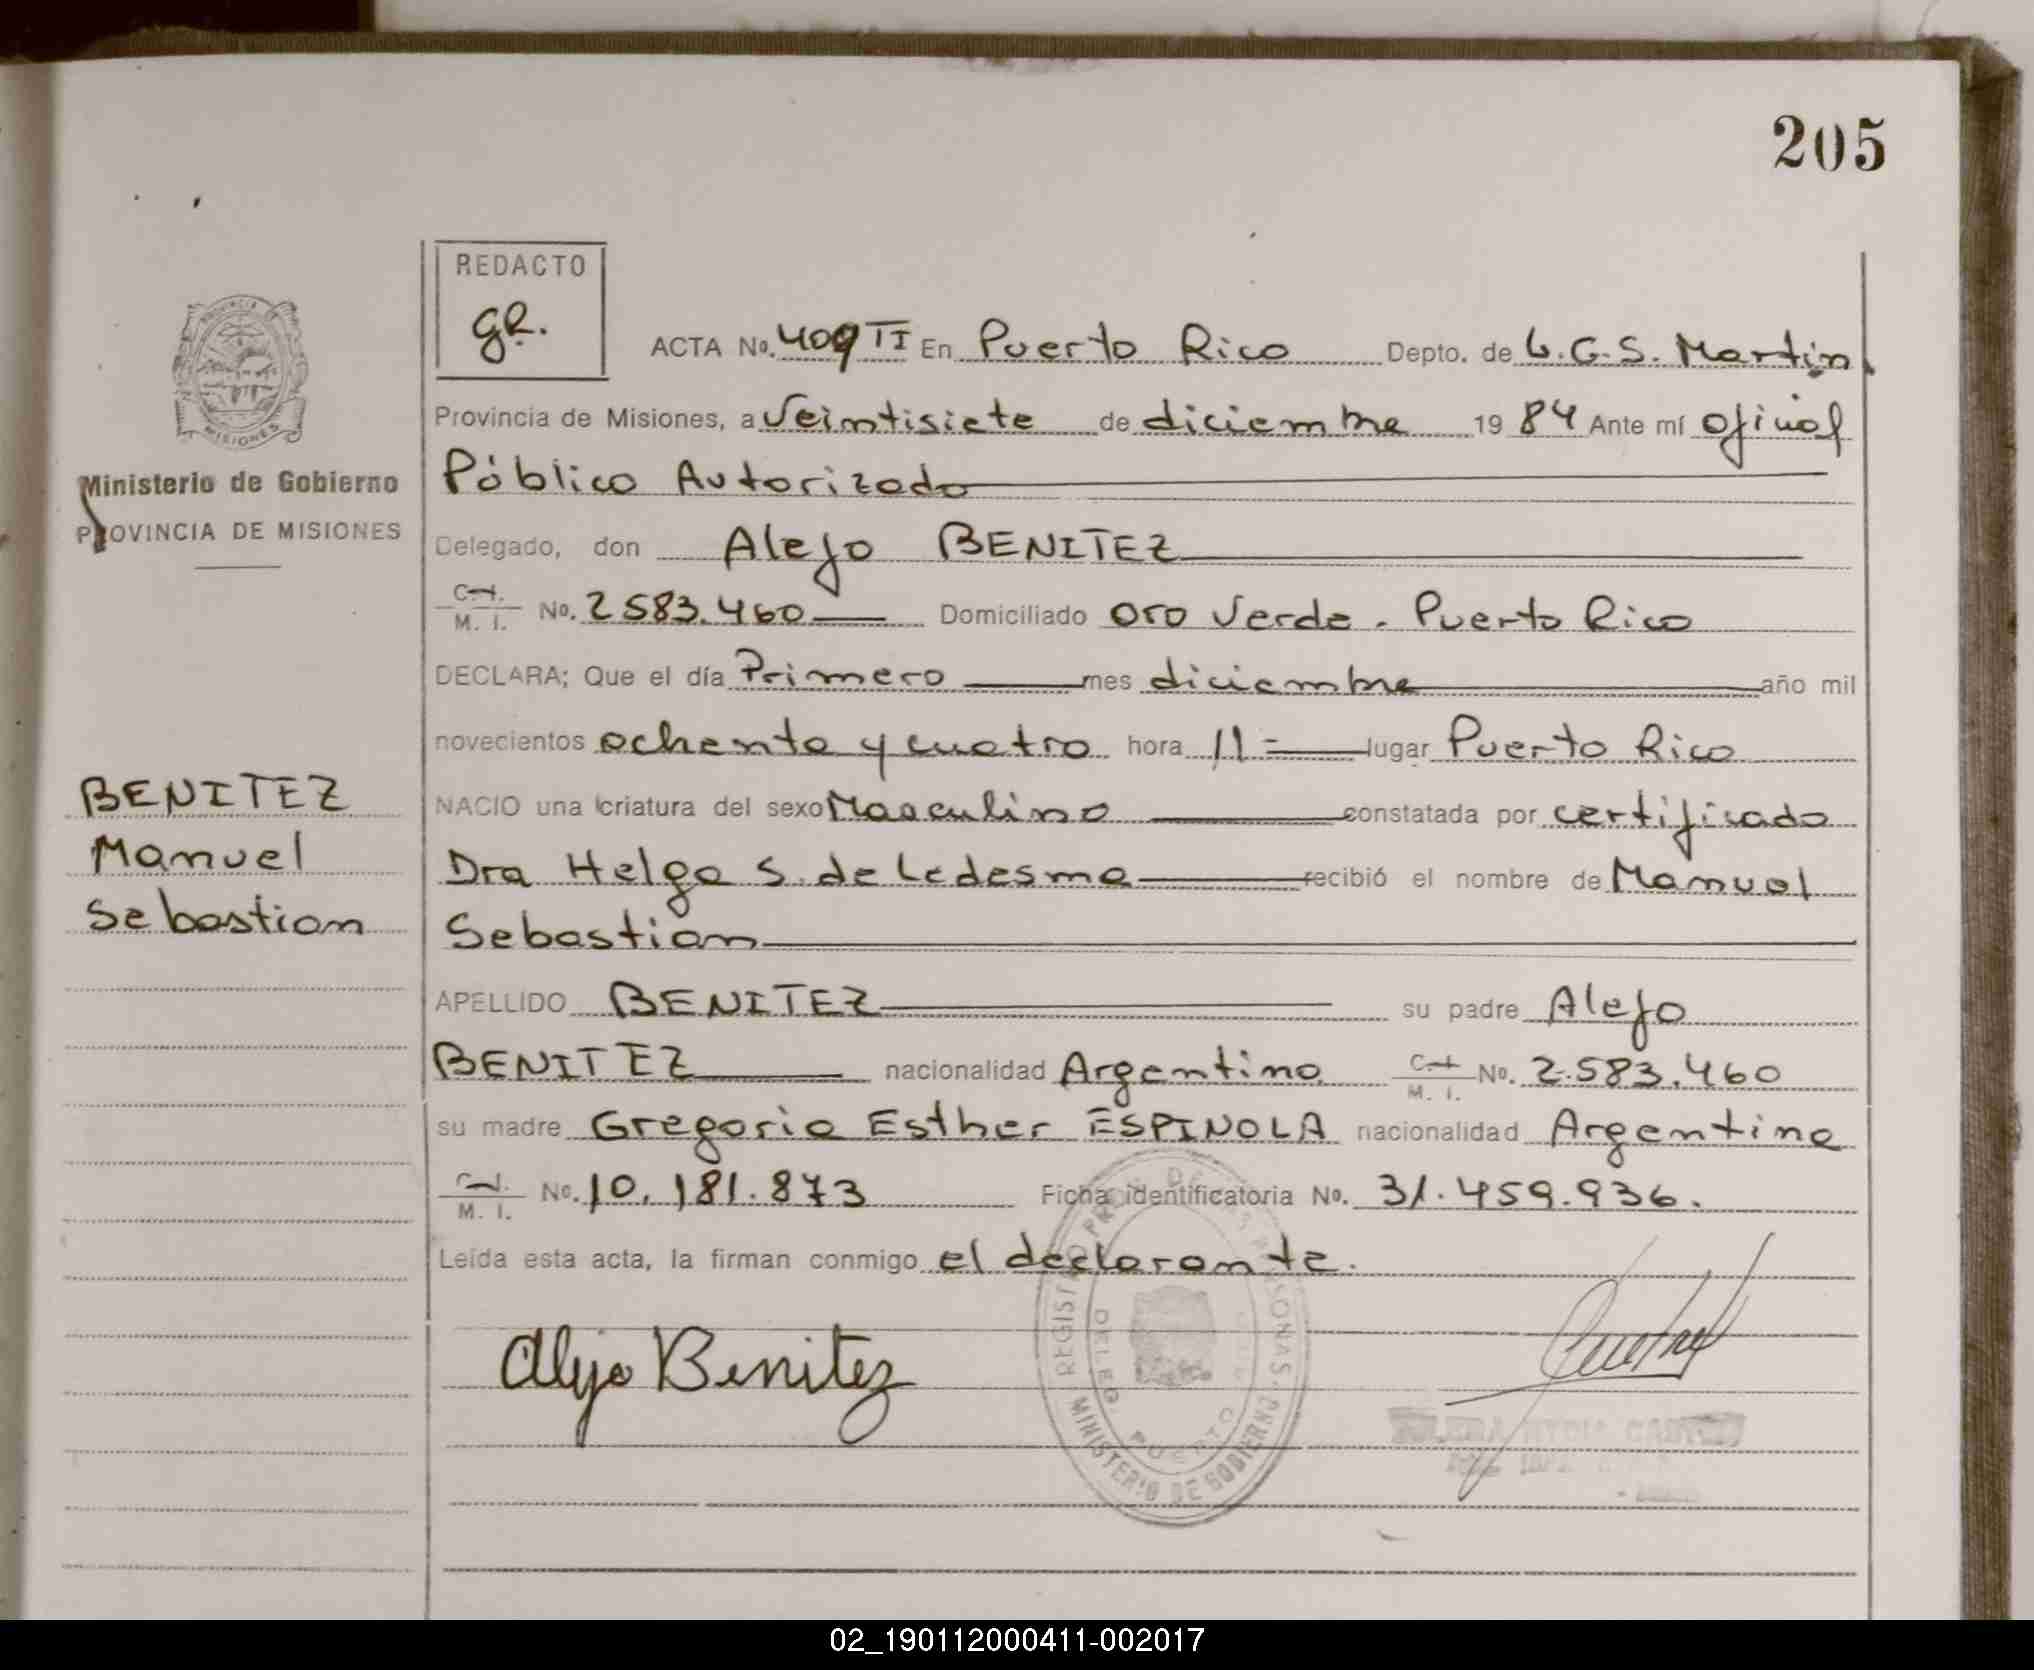 205
REDACTO
gR.
ACTA No. 409 II En Puerto Rico Depto. de L.G.S. Martín
Provincia de Misiones, a Veintisiete de diciembre 19 84 Ante mí Oficial
Ministerio de Gobierno
PROVINCIA DE MISIONES
Público Autorizado
Delegado, don Alejo BENITEZ
C.I. M. I. No. 2583.460 Domiciliado Oro Verde. Puerto Rico
DECLARA; Que el día Primero mes diciembre año mil
novecientos ochenta y cuatro hora 11= lugar Puerto Rico
BENITEZ
Manuel
Sebastian
NACIO una criatura del sexo Masculino constatada por certificado
Dra Helga S. de Ledesma recibió el nombre de Manuel
Sebastian
APELLIDO BENITEZ su padre Alejo
BENITEZ nacionalidad Argentino C.I. M. I. No. 2.583.460
su madre Gregoria Esther ESPINOLA nacionalidad Argentina
C.I. M. I. No. 10.181.873 Ficha identificatoria No. 31.459.936.
Leída esta acta, la firman conmigo el declarante.
Alejo Benitez
MINISTERIO DE GOBIERNO
DELEG. PUERTO
PROVINCIA
MISIONES
02_190112000411-002017